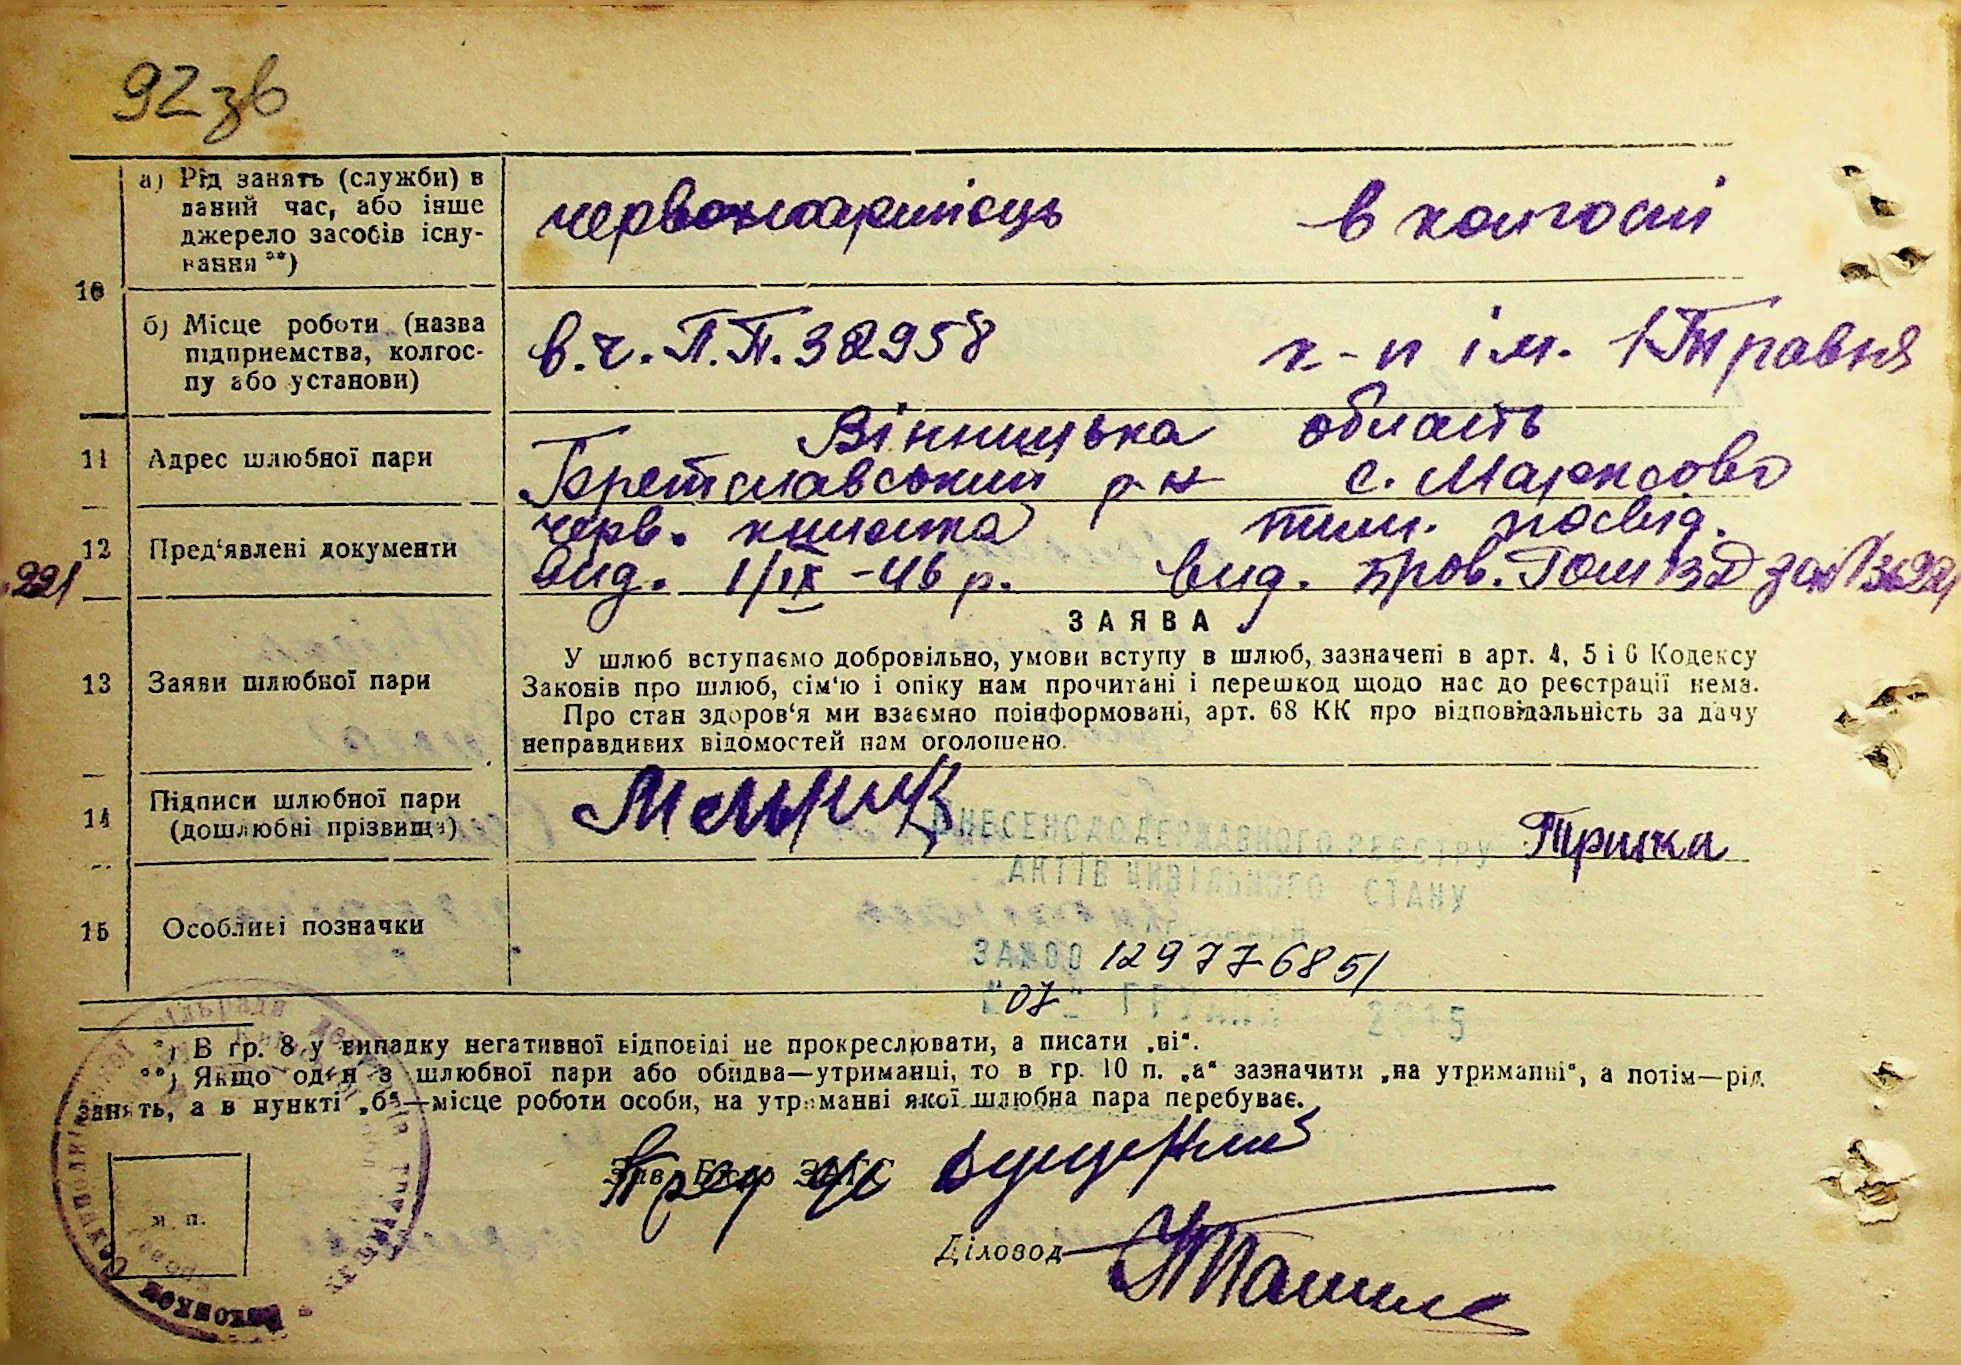 92 зв
а) Рід занять (служби) в
даний час, або інше
джерело засобів існу-
вання **)
червоноармієць в колгоспі
10
б) Місце роботи (назва
підприємства, колгос-
пу або установи)
в.ч. П.П. 32958 к-п ім. 1 Травня
11 Адрес шлюбної пари
Вінницька область
р-н с. Марксово
12 Пред'явлені документи
черв. книжка тим. посвід.
вид. 1/IX-46 р. вид.
221
ЗАЯВА
13 Заяви шлюбної пари
У шлюб вступаємо добровільно, умови вступу в шлюб, зазначені в арт. 4, 5 і 6 Кодексу
Законів про шлюб, сім'ю і опіку нам прочитані і перешкод щодо нас до реєстрації нема.
Про стан здоров'я ми взаємно поінформовані, арт. 68 КК про відповідальність за дачу
неправдивих відомостей нам оголошено.
14 Підписи шлюбної пари
(дошлюбні прізвища)
Мельник
ВНЕСЕНО ДО ДЕРЖАВНОГО РЕЄСТРУ
АКТІВ ЦИВІЛЬНОГО СТАНУ
15 Особливі позначки
ЗА № 00 12977685
"07" ГРУДНЯ 2015
*) В гр. 8 у випадку негативної відповіді не прокреслювати, а писати „ні“.
**) Якщо один з шлюбної пари або обидва—утриманці, то в гр. 10 п. „а“ зазначити „на утриманні“, а потім—рід
занять, а в пункті „б“—місце роботи особи, на утриманні якої шлюбна пара перебуває.
Зав. Бюро ЗАГС
М. П.
Діловод